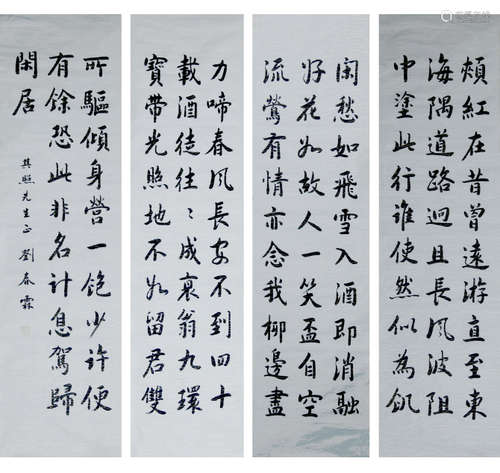 頰紅在昔曾遠游直至東
海隅道路迥且長風波阻
中塗此行誰使然似為飢
閑愁如飛雪入酒即消融
好花如故人一笑盃自空
流鶯有情亦念我柳邊盡
力啼春風長安不到四十
載酒徒往〻成衰翁九環
寶帶光照地不如留君雙
所驅傾身營一飽少許便
有餘恐此非名計息駕歸
閑居
其照先生正 劉春霖